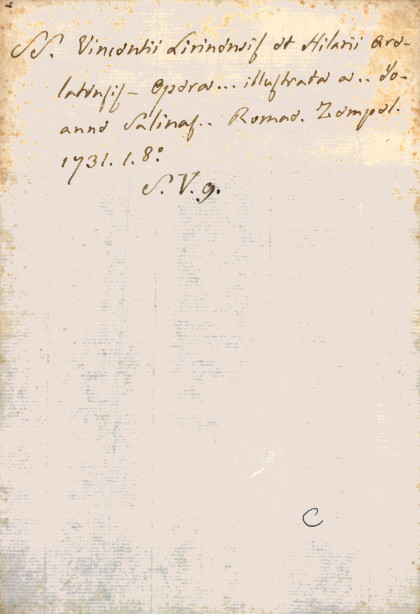 SS. Vincentii Lirinensis et Hilarii Are-
latensis - Opera... illustrata a.. Jo-
anne Salinas.. Romae. Zempel.
1731. 1. 8.º
S. V. 9.
C